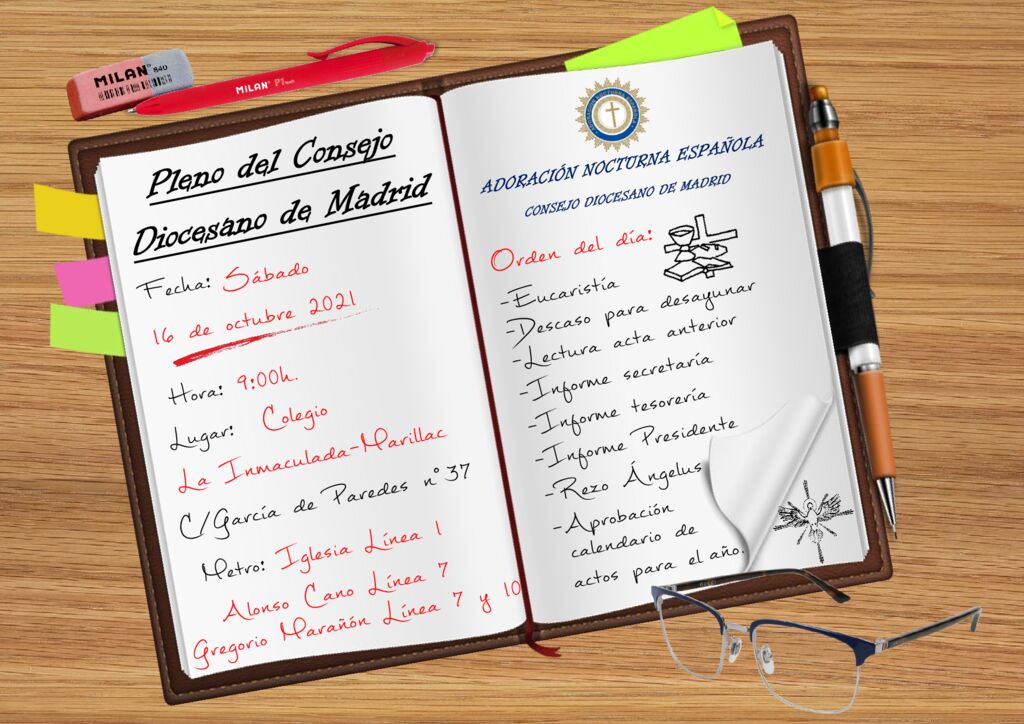 MILAN 840
MILAN P1 touch
Pleno del Consejo
Diocesano de Madrid
Fecha: Sábado
16 de octubre 2021
Hora: 9:00h.
Lugar: Colegio
La Inmaculada-Marillac
C/García de Paredes nº37
Metro: Iglesia Línea 1
Alonso Cano Línea 7
Gregorio Marañón Línea 7 y 10
ADORACIÓN NOCTURNA ESPAÑOLA
CONSEJO DIOCESANO DE MADRID
Orden del día:
-Eucaristía
-Descaso para desayunar
-Lectura acta anterior
-Informe secretaría
-Informe tesorería
-Informe Presidente
-Rezo Ángelus
-Aprobación
calendario de
actos para el año.